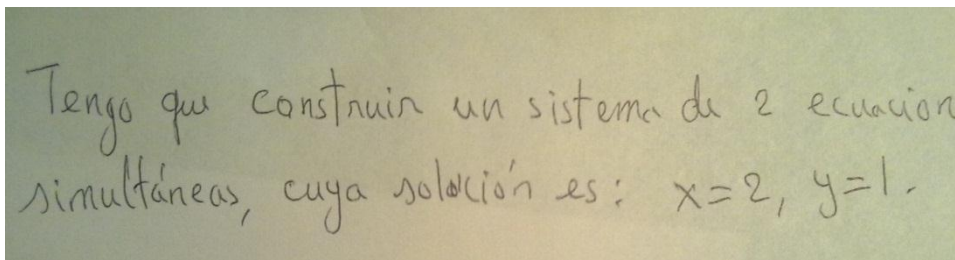 Tengo que construir un sistema de 2 ecuacion
simultáneas, cuya solución es: x=2, y=1.